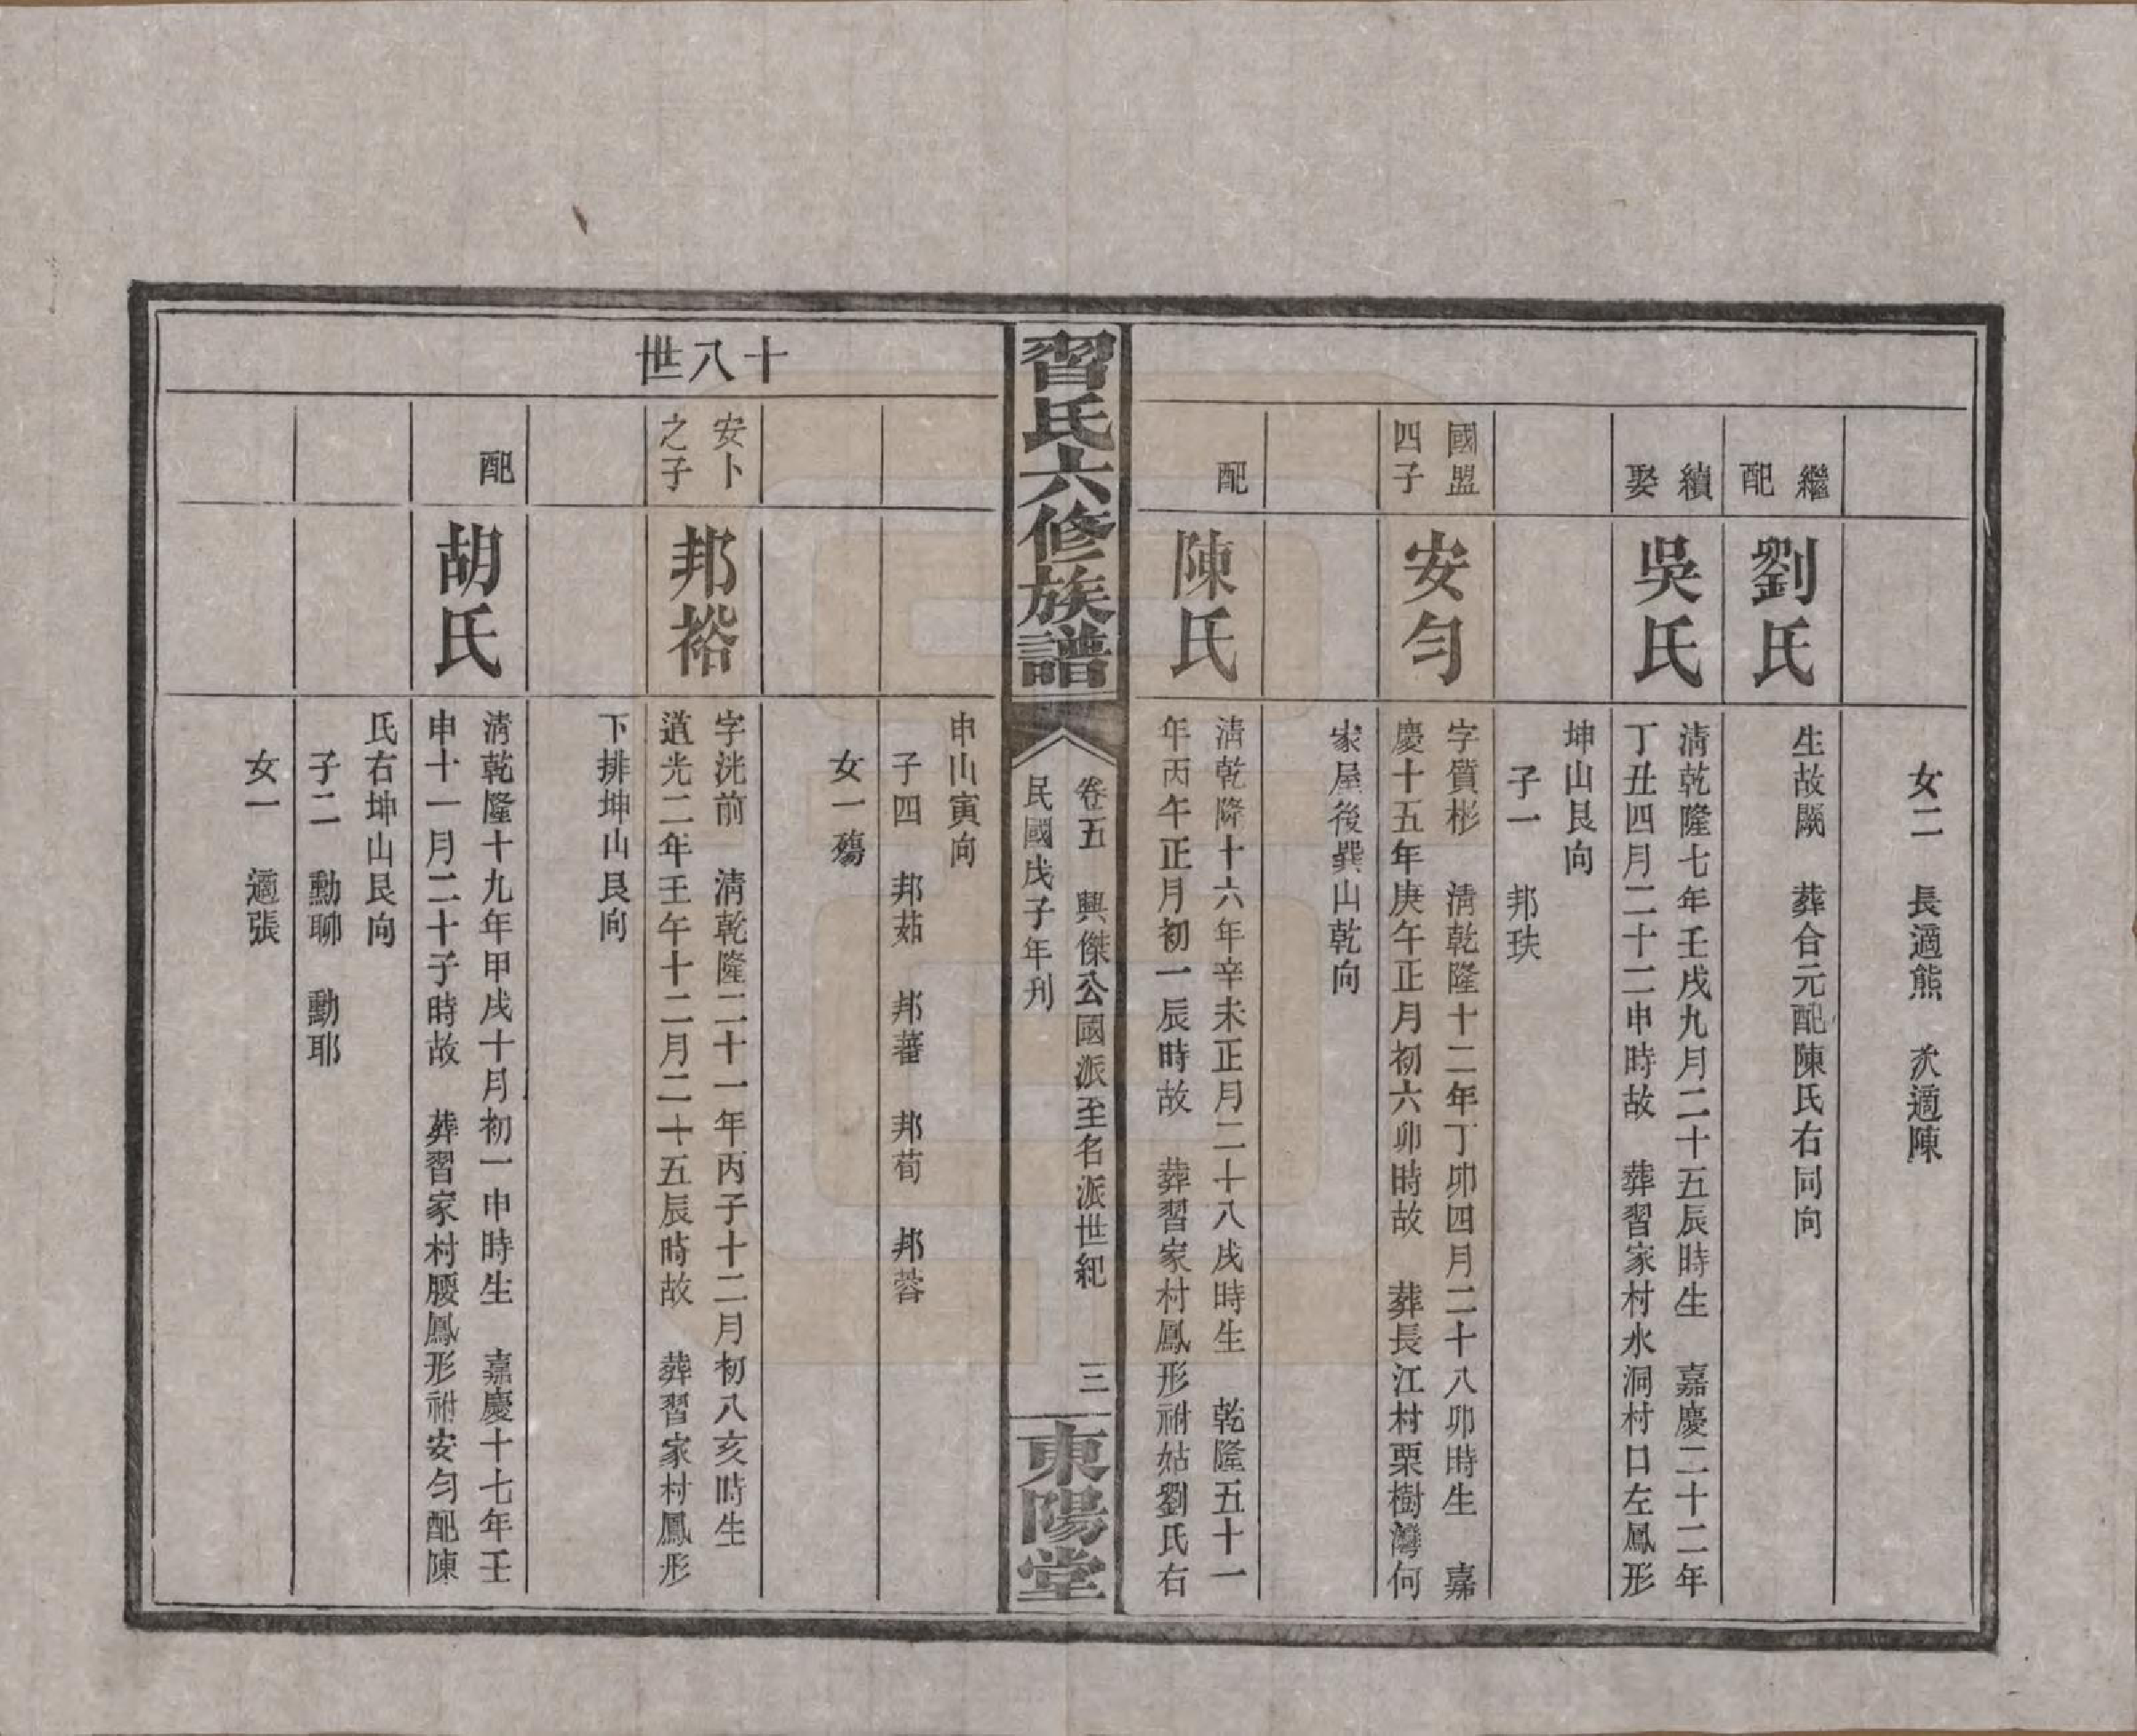 女二　長適熊　次適陳
繼
配
劉氏
生故闕　葬合元配陳氏右同向
續
娶
吳氏
清乾隆七年壬戌九月二十五辰時生　嘉慶二十二年
丁丑四月二十二申時故　葬習家村水洞村口左鳳形
坤山艮向
子一　邦玞
國盟
四子
安勻
字質彬　清乾隆十二年丁卯四月二十八卯時生　嘉
慶十五年庚午正月初六卯時故　葬長江村栗樹灣何
家屋後巽山乾向
配
陳氏
清乾隆十六年辛未正月二十八戌時生　乾隆五十一
年丙午正月初一辰時故　葬習家村鳳形祔姑劉氏右
習氏六修族譜
卷五　興傑公國派至名派世紀　三
民國戊子年刊
東陽堂
申山寅向
子四　邦茹　邦蕃　邦荀　邦蓉
女一殤
十八世
安卜
之子
邦裕
字洸前　清乾隆二十一年丙子十二月初八亥時生
道光二年壬午十二月二十五辰時故　葬習家村鳳形
下排坤山艮向
配
胡氏
清乾隆十九年甲戌十月初一申時生　嘉慶十七年壬
申十一月二十子時故　葬習家村腰鳳形祔安勻配陳
氏右坤山艮向
子二　勳聊　勳耶
女一　適張